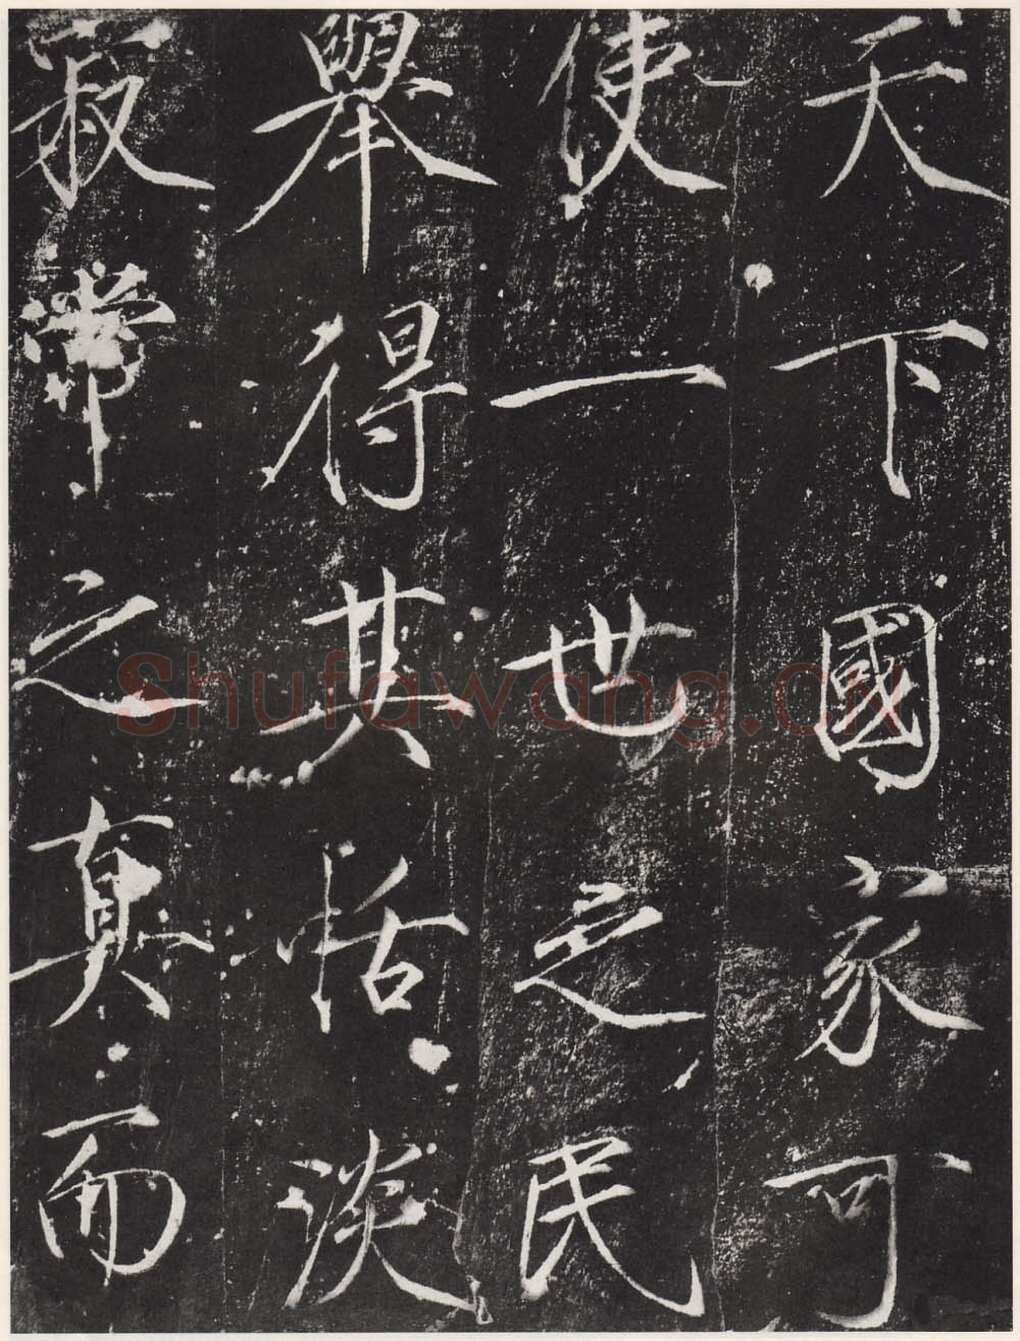 天下國家可
使一世之民
舉得其恬淡
寂常之真而
Shufawang.cn